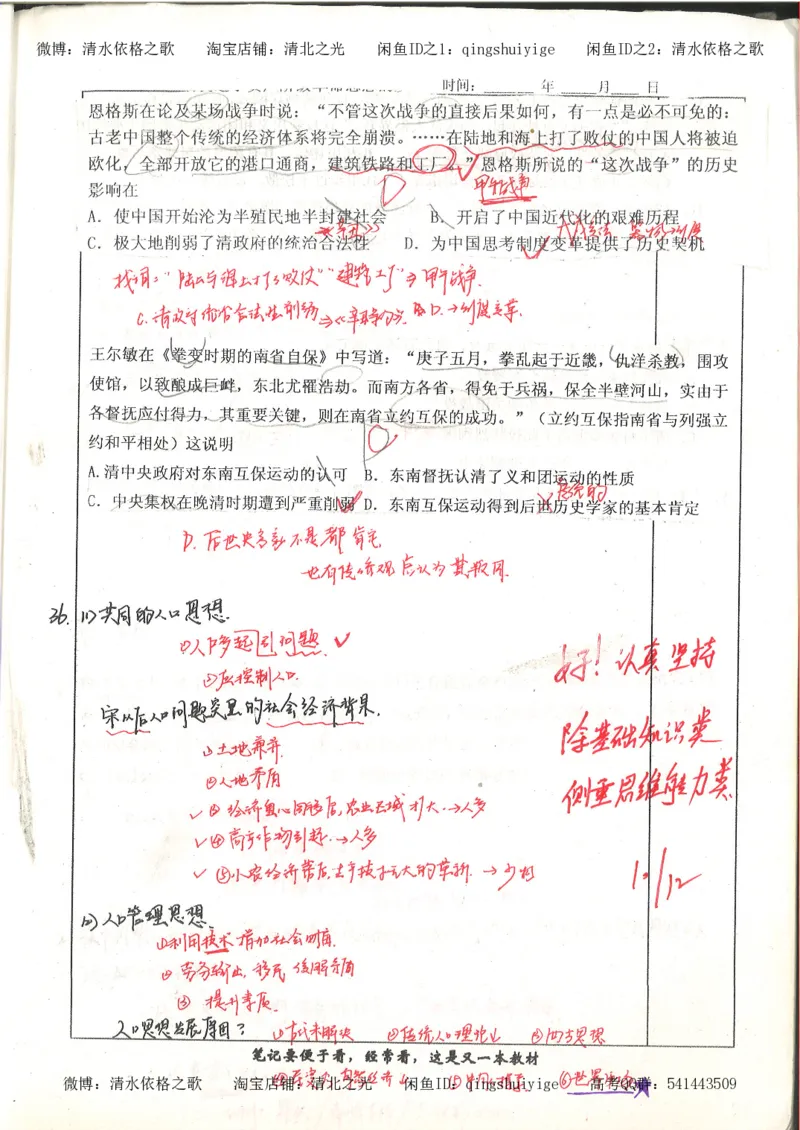 微博：清水依格之歌 淘宝店铺：清北之光 闲鱼ID之1：qingshuiyige 闲鱼ID之2：清水依格之歌
时间： 年 月 日
恩格斯在论及某场战争时说：“不管这次战争的直接后果如何，有一点是必不可免的：
古老中国整个传统的经济体系将完全崩溃。……在陆地和海上打了败仗的中国人将被迫
欧化，全部开放它的港口通商，建筑铁路和工厂。”恩格斯所说的“这次战争”的历史
甲午战争
影响在
A．使中国开始沦为半殖民地半封建社会 B．开启了中国近代化的艰难历程
C．极大地削弱了清政府的统治合法性 D．为中国思考制度变革提供了历史契机
找词：“陆上与海上打了败仗”“建铁 工厂”⇒甲午战争.
C.清政府统治合法性削弱⇒ D.→制度变革.
王尔敏在《拳变时期的南省自保》中写道：“庚子五月，拳乱起于近畿，仇洋杀教，围攻
使馆，以致酿成巨衅，东北尤罹浩劫。而南方各省，得免于兵祸，保全半壁河山，实由于
各督抚应付得力，其重要关键，则在南省立约互保的成功。”（立约互保指南省与列强立
约和平相处）这说明
A.清中央政府对东南互保运动的认可 B．东南督抚认清了义和团运动的性质
C．中央集权在晚清时期遭到严重削弱 D．东南互保运动得到后世历史学家的基本肯定
D.后世史多家不是都肯定
也有传统观点认为其叛国.
36. (1)共同的人口思想.
①人口多起引问题.
②应控制人口.
好！认真坚持
宋以后人口问题突显的社会经济背景.
①土地兼并.
除基础知识类
②人地矛盾
侧重思维能力类
③经济重心南移后,农业区域扩大→人多
④高产作物引起.→人多
⑤小农经济背后,生产技术无大的革新.
12/12
(2)人口管理思想.
①利用技术增加社会财富.
②劳务输出,移民缓解矛盾
③提升素质.
人口思想发展原因？ ①古代未解决 ②传统人口理论 ③西方思想
笔记要便于看，经常看，这是又一本教材
微博：清水依格之歌 淘宝店铺：清北之光 闲鱼ID：qingshuiyige 高考QQ群：541443509